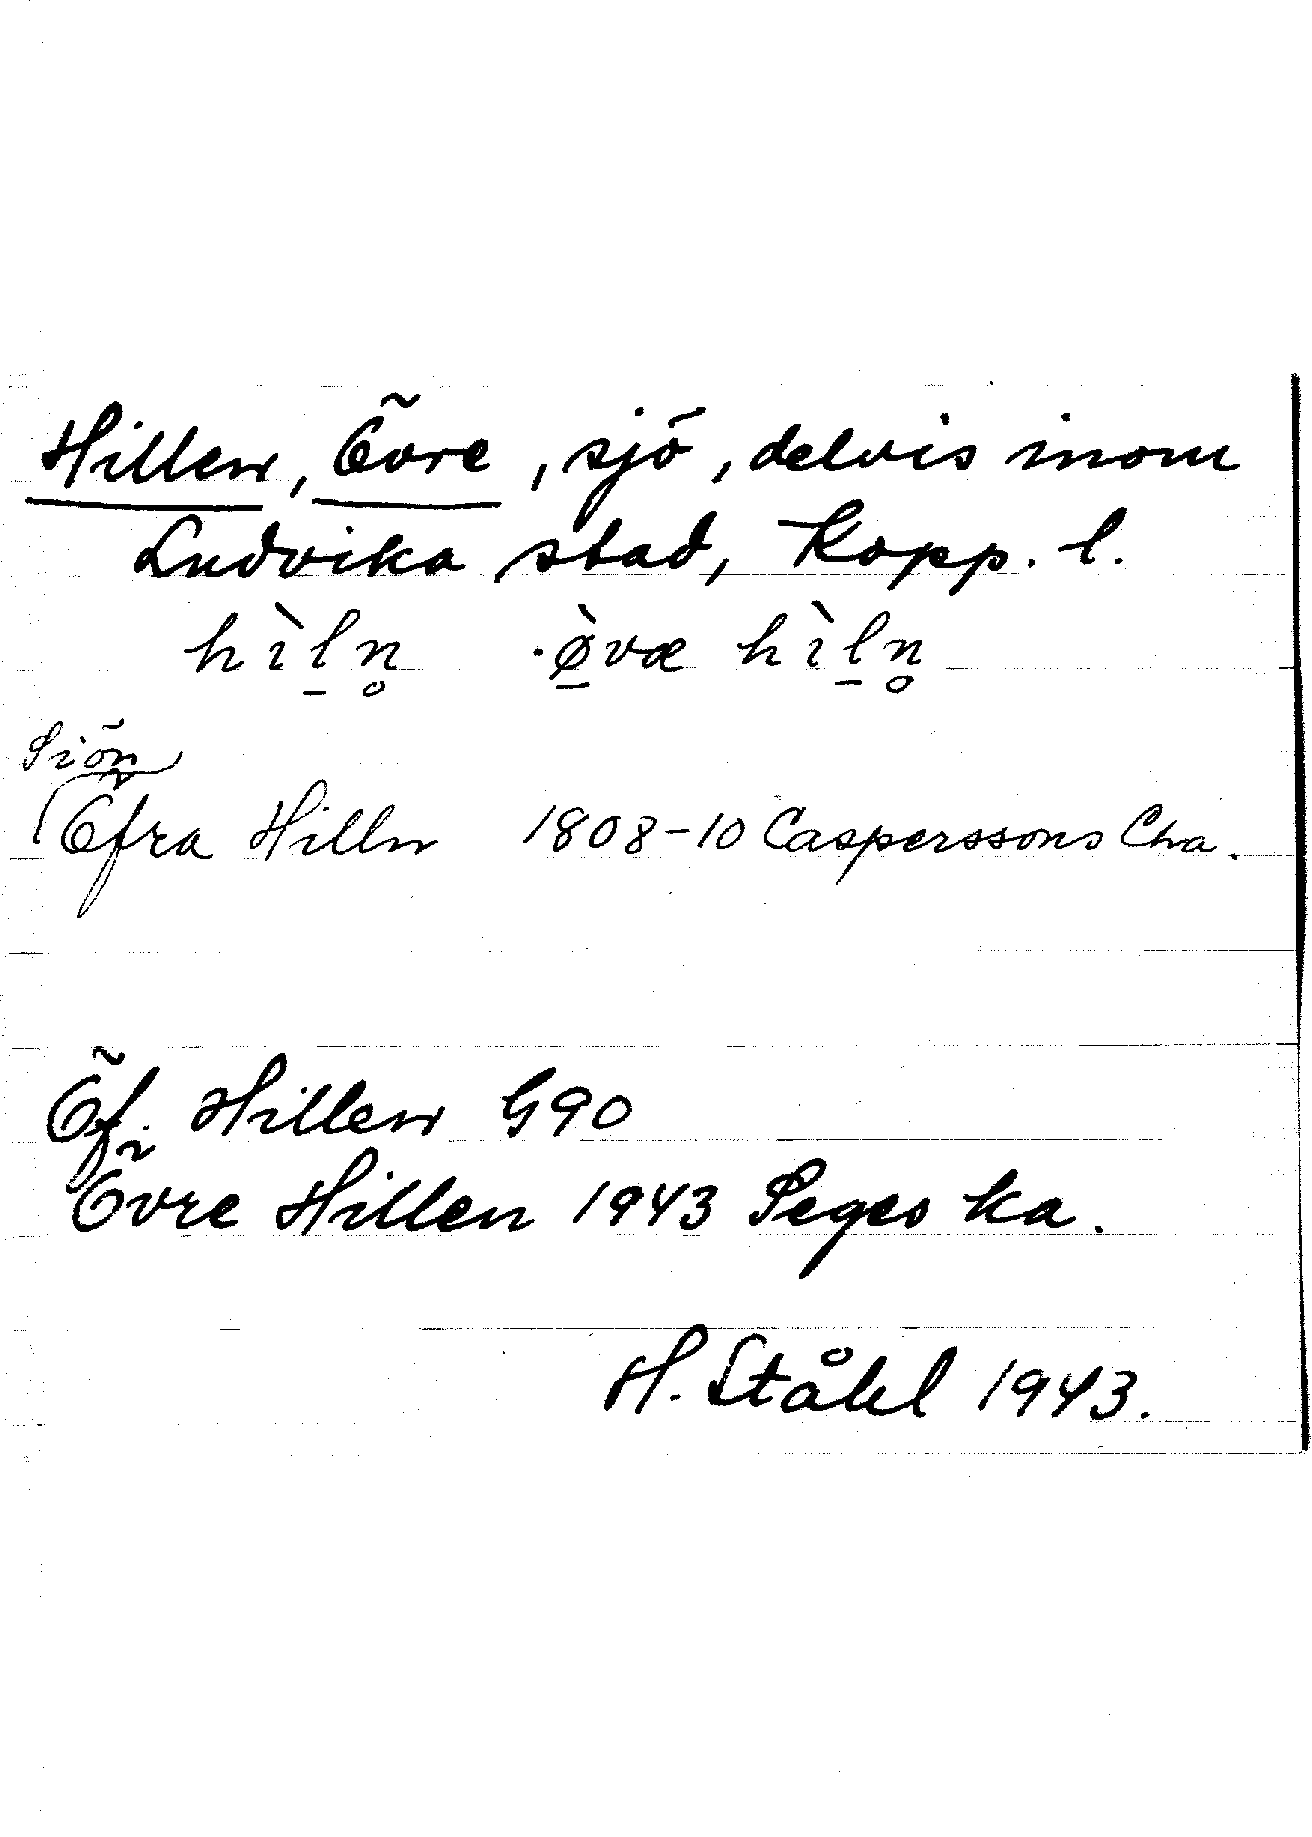 Hillen, Övre, sjö, delvis inom
Ludvika stad, Kopp. l.
hìl̠n̥ ·ø̠̀væ hìl̠n̥
Siön
Öfra Hilln 1808-10 Casperssons Cha.
Öf. Hillen G90
Övre Hillen 1943 Seges ka.
H. Ståhl 1943.